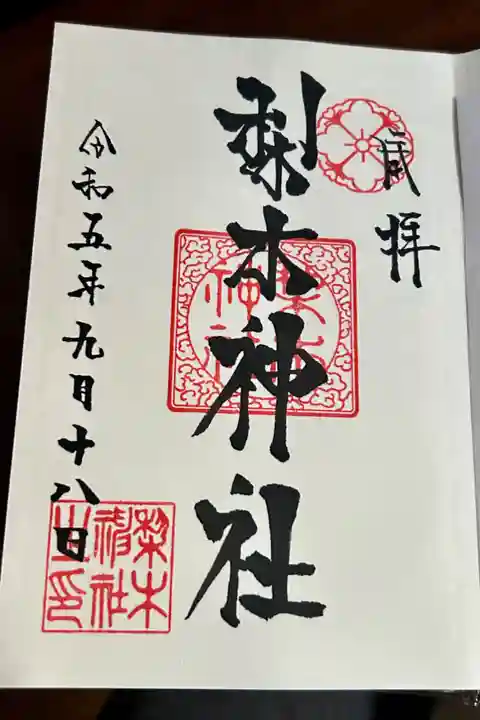 拝
梨木神社
梨木
神社
令和五年九月十八日
梨木
神社
之印